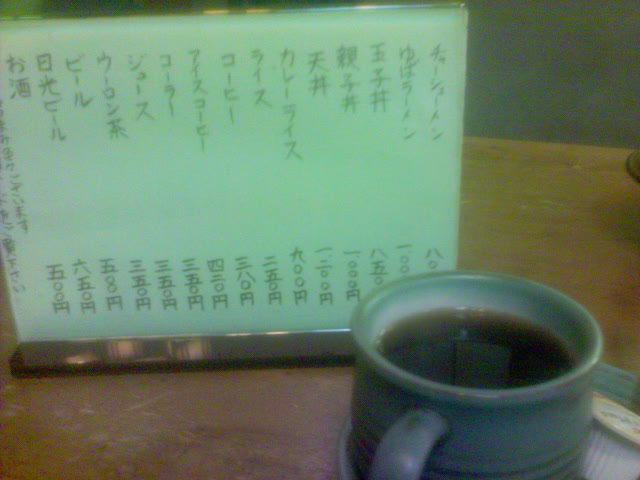 チャーシューメン 八〇
ゆばラーメン 一〇〇
玉子丼 八五〇
親子丼 一〇〇〇円
天丼 一二〇〇円
カレーライス 九〇〇円
ライス 二五〇円
コーヒー 三八〇円
アイスコーヒー 四三〇円
コーラー 三五〇円
ジュース 三五〇円
ウーロン茶 三五〇円
ビール 五〇〇円
日光ビール 六五〇円
お酒 五〇〇円
ございます
下さい